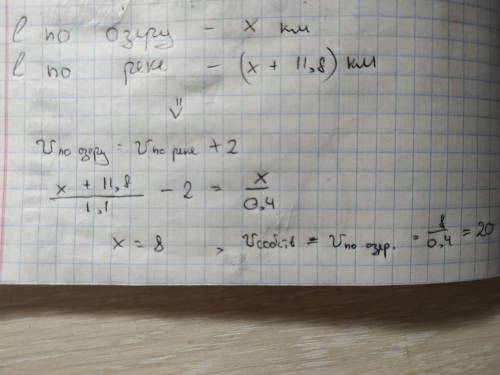 l по озеру - x км
l по реке - (x + 11,8) км
⇓
V по озеру = V по реке + 2
(x + 11,8)/1,1 - 2 = x/0,4
x = 8 , V собств = V по озер. = 8/0,4 = 20